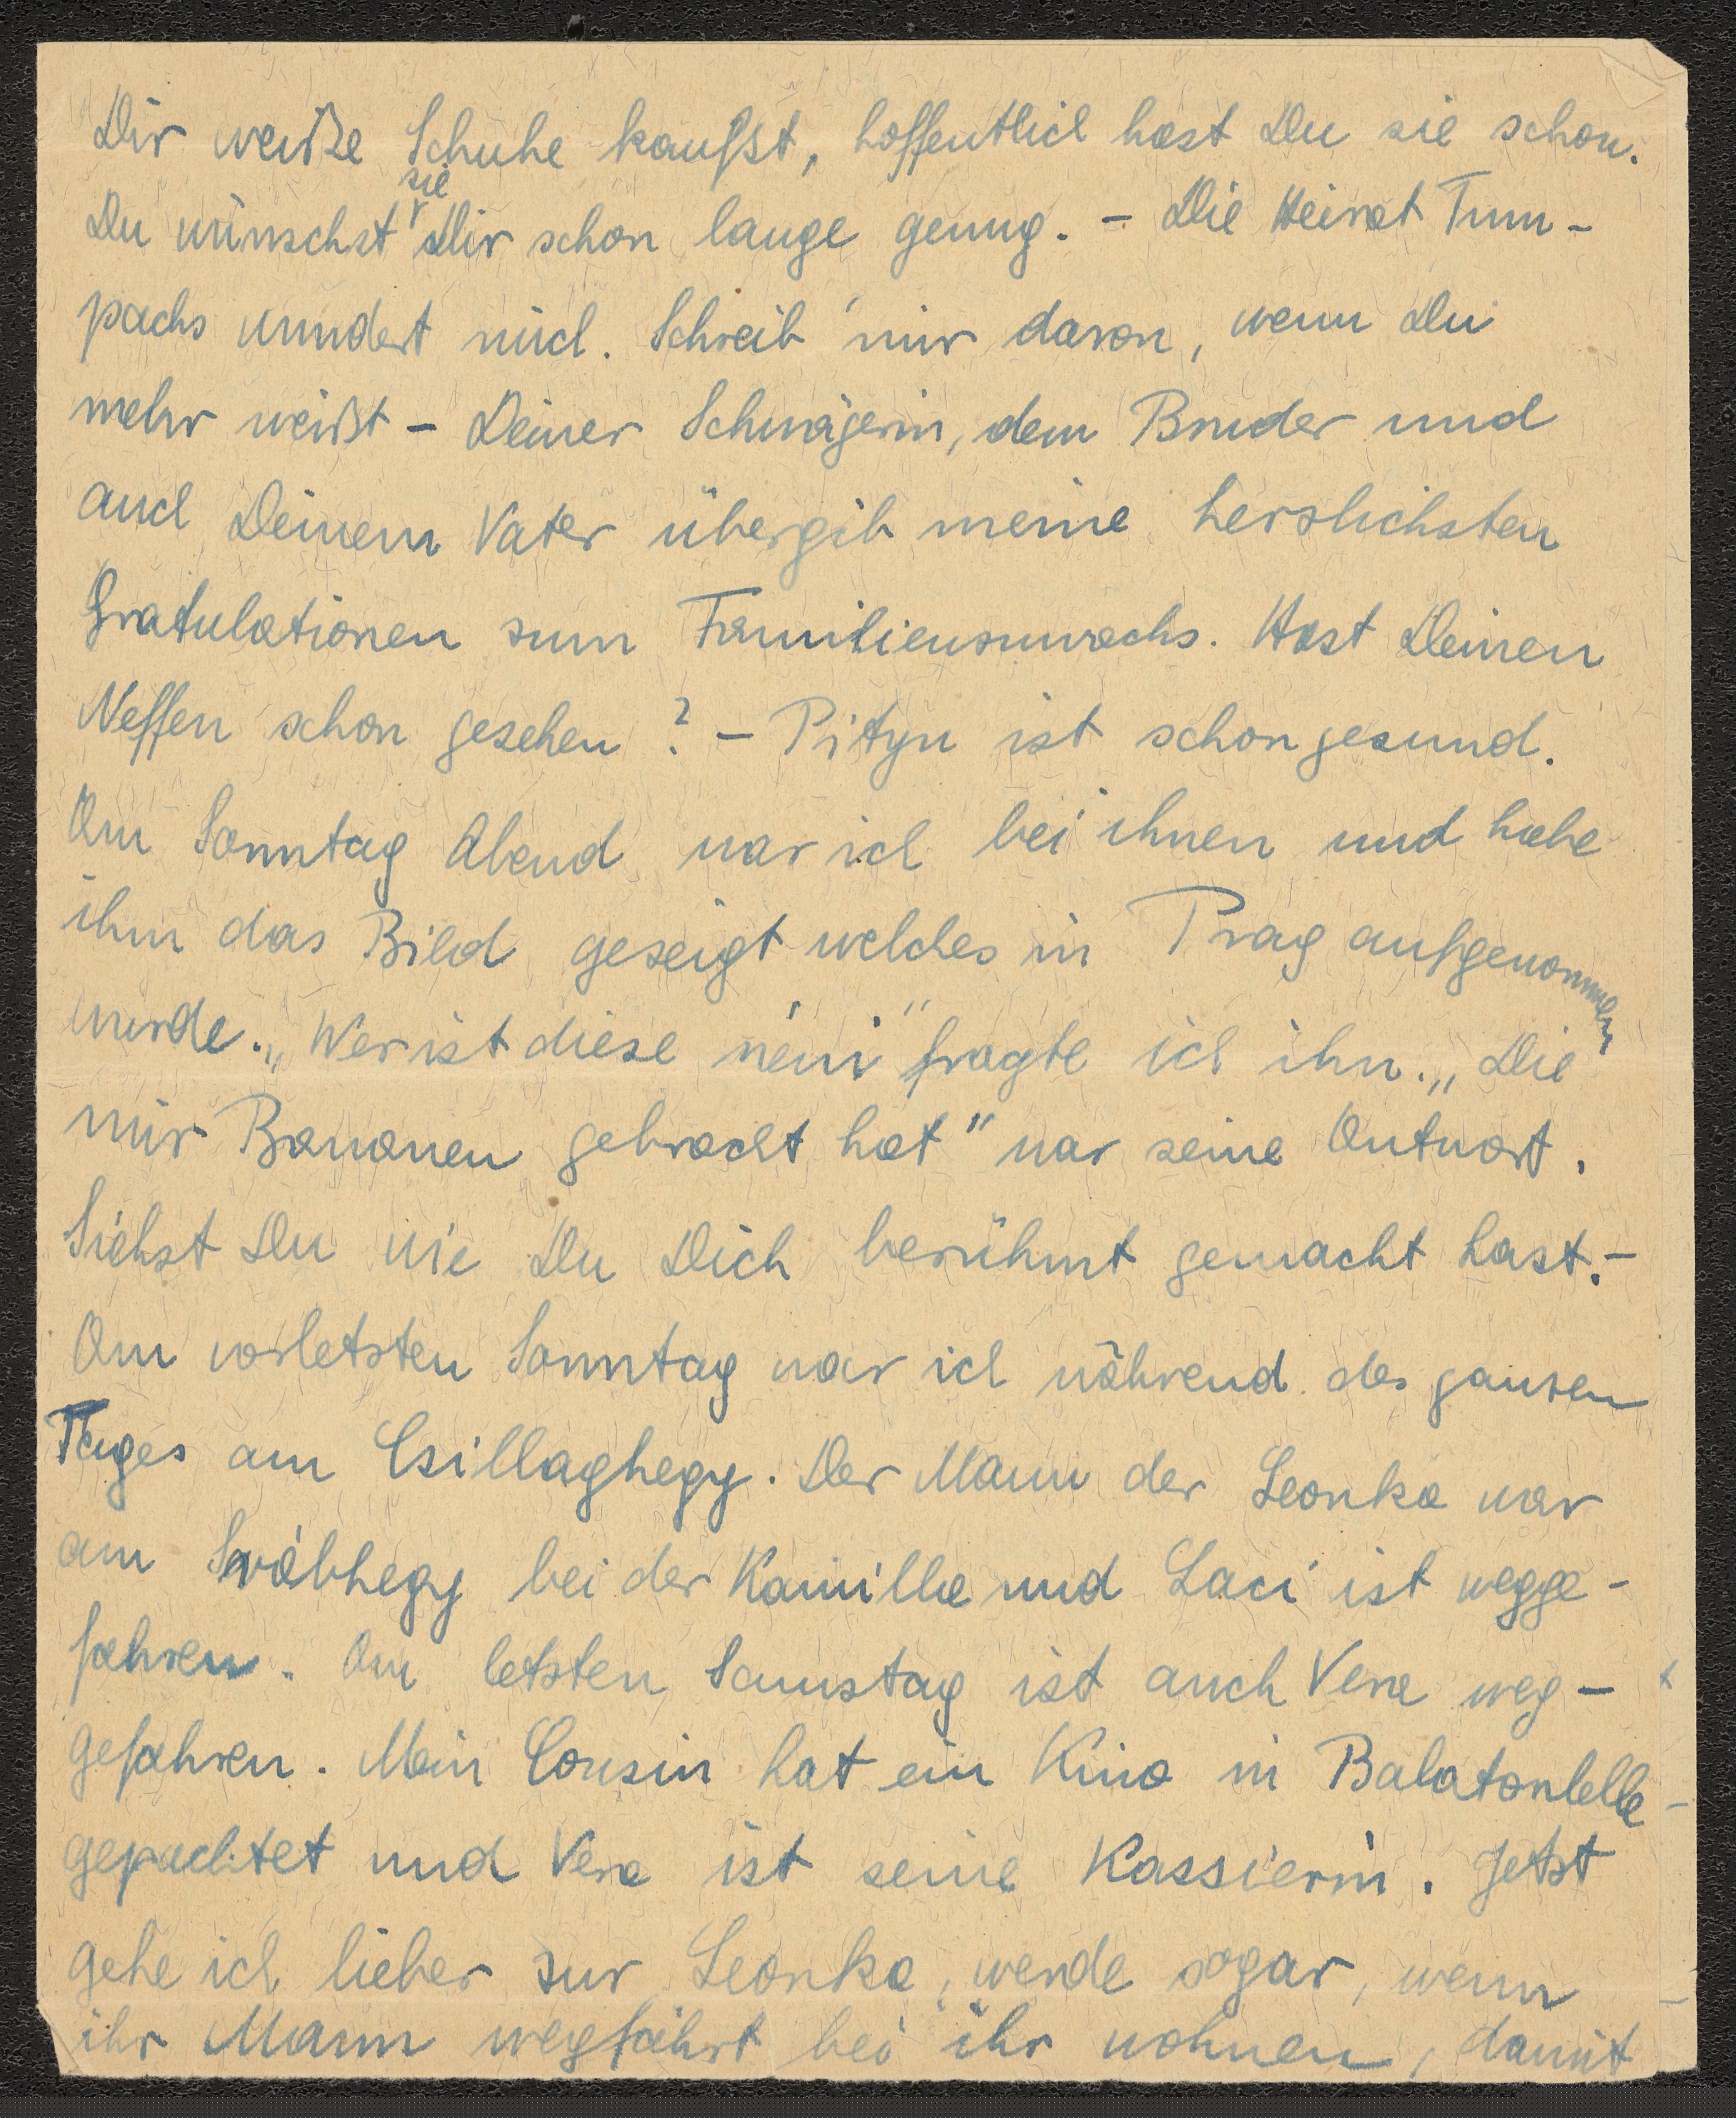 Dir weiße Schuhe kaufst, hoffentlich hast Du sie schon.
Du wünschst sie Dir schon lange genug. – Die Heirat Tum-
pachs wundert mich. Schreib mir davon, wenn Du
mehr weißt – Deiner Schwägerin, dem Bruder und
auch Deinem Vater übergib meine herzlichsten
Gratulationen zum Familienzuwachs. Hast Deinen
Neffen schon gesehen? – Pityu ist schon gesund.
Am Sonntag Abend war ich bei ihnen und habe
ihm das Bild gezeigt welches in Prag aufgenommen
wurde. „Wer ist diese néni" fragte ich ihn. „Die
mir Bananen gebracht hat" war seine Antwort.
Siehst Du wie Du Dich berühmt gemacht hast. –
Am vorletzten Sonntag war ich während des ganzen
Tages am Csillaghegy. Der Mann der Leonka war
am Svábhegy bei der Kamilla und Laci ist wegge-
fahren. Am letzten Samstag ist auch Vera weg-
gefahren. Mein Cousin hat ein Kino in Balatonlelle
gepachtet und Vera ist seine Kassierin. Jetzt
gehe ich lieber zur Leonka, werde sogar, wenn
ihr Mann wegfährt bei ihr wohnen, damit